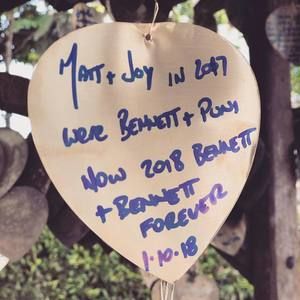 MATT + JOY IN 2017
WERE BENNETT + PUNI
NOW 2018 BENNETT
+ BENNETT
FOREVER
1·10·18